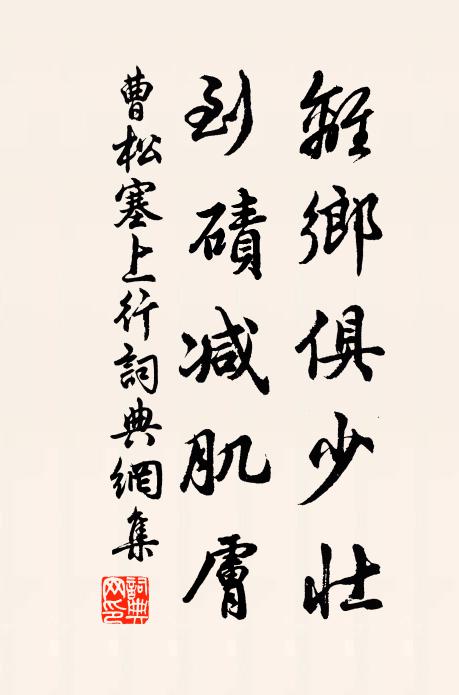 離鄉俱少壯
到磧減肌膚
曹松塞上行詞典網集
詞典網印